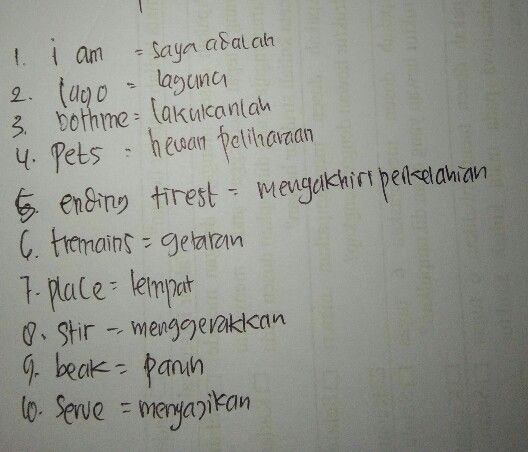 1. i am = saya adalah
2. lago = laguna
3. bothme = lakukanlah
4. Pets = hewan peliharaan
5. ending tirest = mengakhiri perkelahian
6. tremains = getaran
7. place = tempat
8. stir = menggerakkan
9. beak = paruh
10. serve = menyajikan